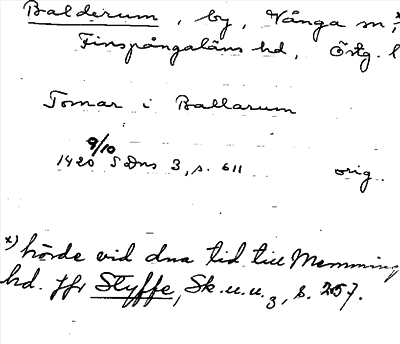 Balderum, by, Vånga sn, x)
Finspångaläns hd, Östg. l
Tomar i Ballarum
9/10
1420 SDns 3, s. 611 orig.
x) hörde vid dna tid till Memming
hd. Jfr Styffe, Sk. u. u. 3, s. 257.